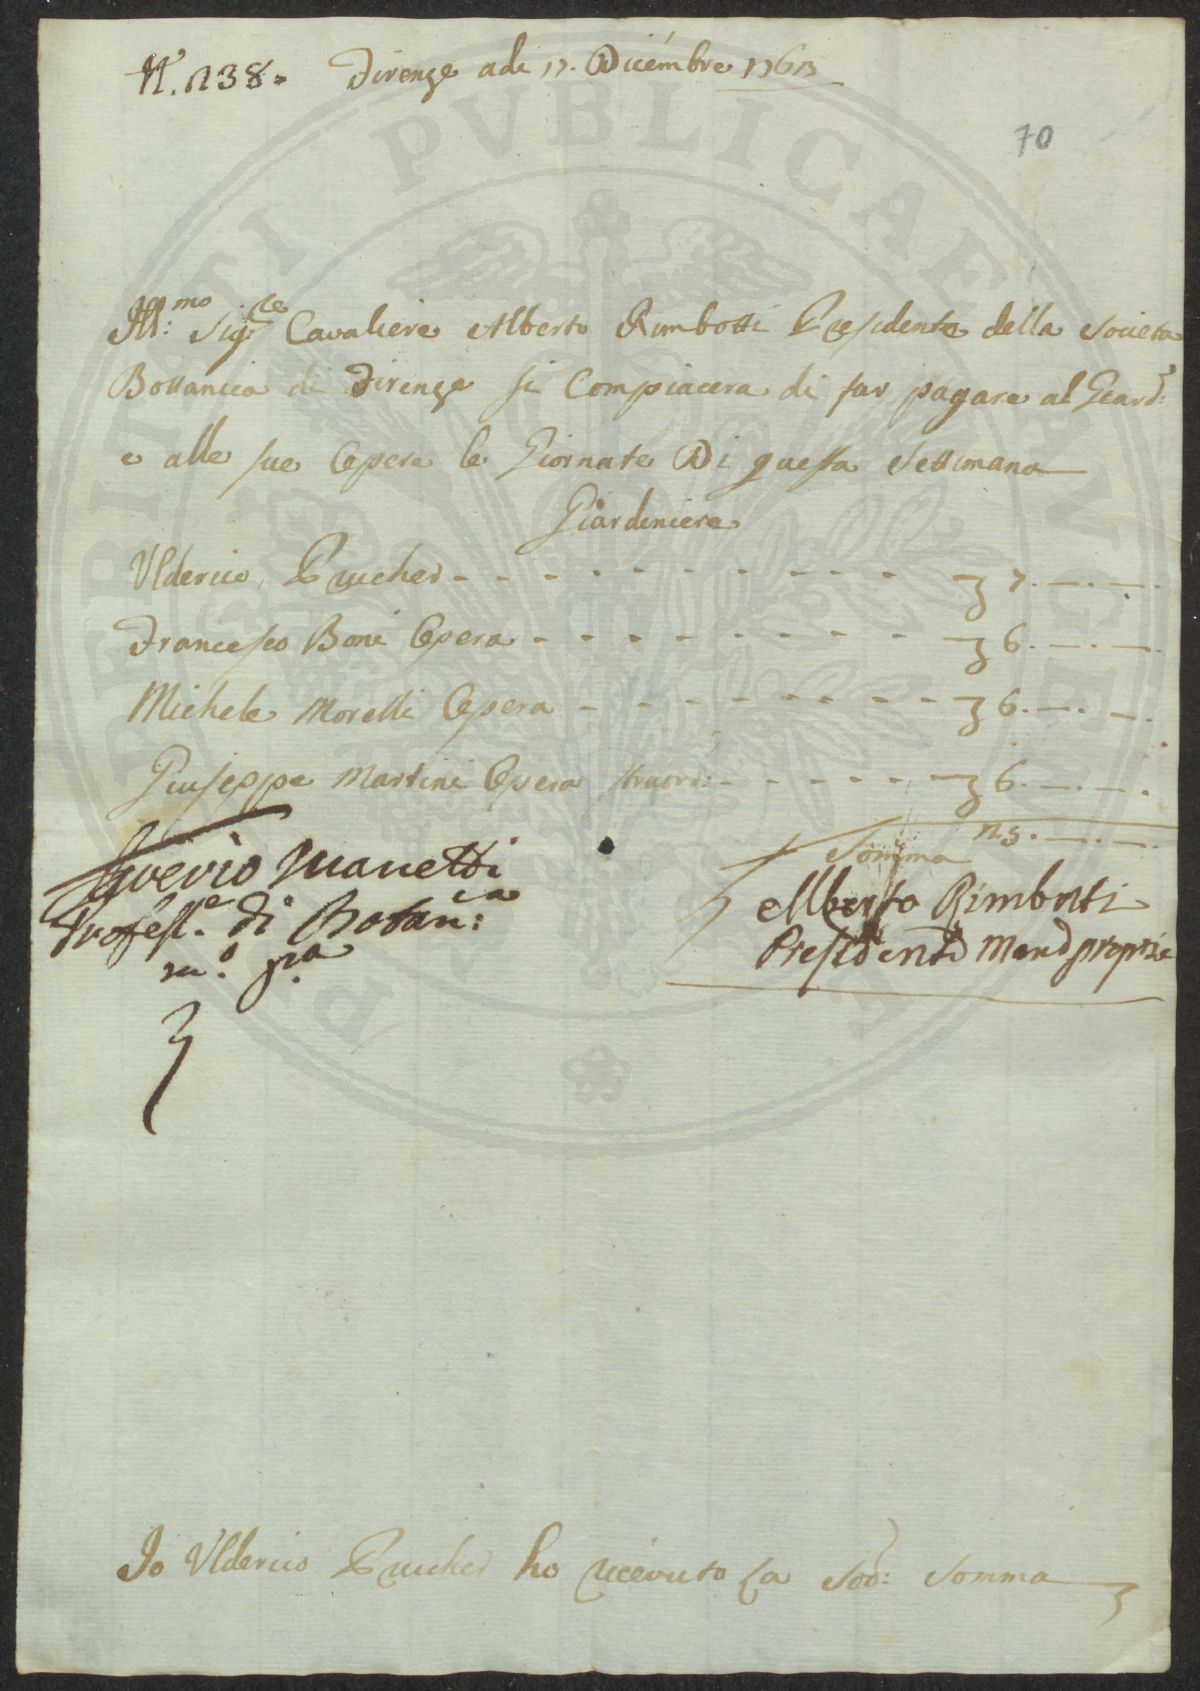 N.° 138. Firenze adi 17. Dicémbre 1763
70
Ill:mo Sig:re Cavaliere Alberto Rimbotti Presidente della Societa
Bottanica di Firenze si Compiacera di far pagare al Giard:e
e alle sue Opere le Giornate Di questa Settimana
Giardiniere
Ulderico Prucher - - - - - - - - - - - 7.—.—.
Francesco Boni Opera - - - - - - - - - 6.—.—.
Michele Morelli Opera - - - - - - - - 6.—.—.
Giuseppe Martini Opera straord: - - - - - 6.—.—.
Somma 25.—.—
Saverio Manetti
Profess.e di Botan:ca
m.o p.a
Alberto Rimbotti
Presidente Mano propria
Io Ulderico Prucher ho ricevuto la Sod:a Somma
PERITISTI PVBLICAE